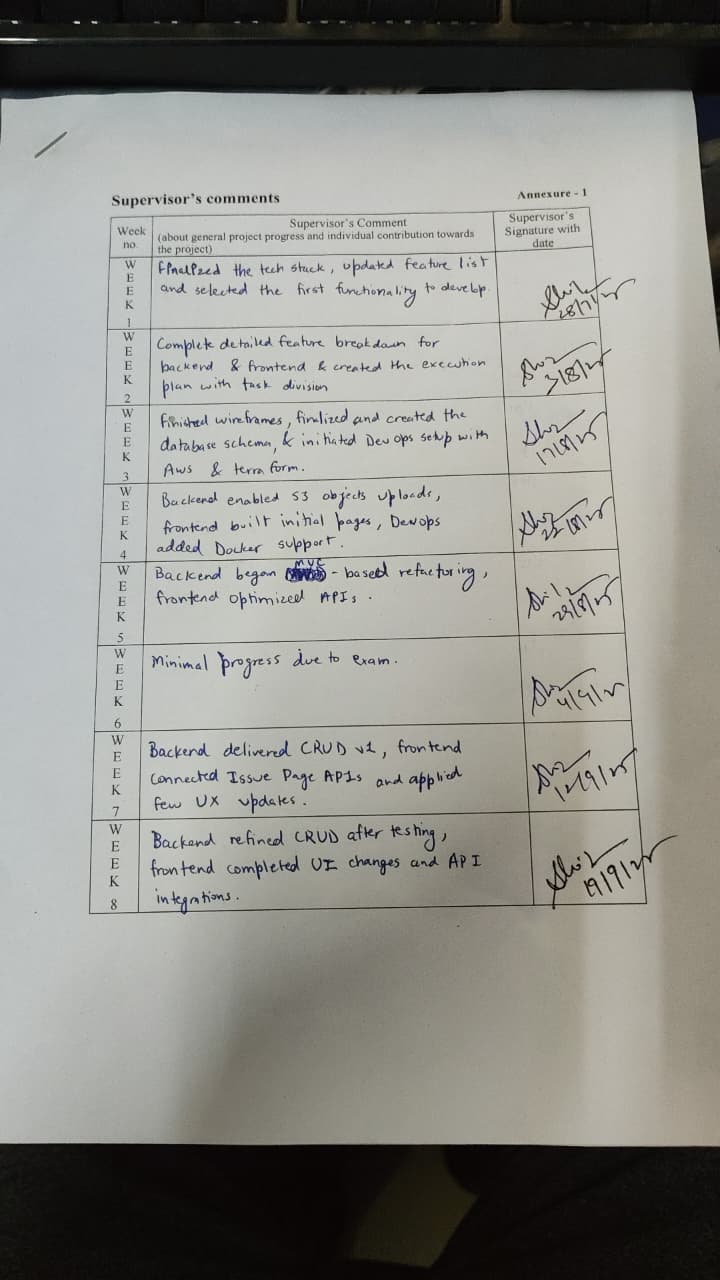 Supervisor's comments
Annexure - 1
Week no.
Supervisor's Comment
(about general project progress and individual contribution towards
the project)
Supervisor's
Signature with
date
WEEK 1
Finalized the tech stack, updated feature list
and selected the first functionality to develop.
28/7/25
WEEK 2
Complete detailed feature breakdown for
backend & frontend & created the execution
plan with task division
3/8/25
WEEK 3
Finished wireframes, finalized and created the
database schema, & initiated Devops setup with
Aws & terra form.
17/8/25
WEEK 4
Backend enabled S3 objects uploads,
frontend built initial pages, Devops
added Docker support.
22/8/25
WEEK 5
Backend began MVC - based refactoring,
frontend optimized APIs.
29/8/25
WEEK 6
Minimal progress due to exam.
4/9/25
WEEK 7
Backend delivered CRUD v1, frontend
connected Issue Page APIs and applied
few UX updates.
12/9/25
WEEK 8
Backend refined CRUD after testing,
frontend completed UI changes and API
integrations.
19/9/25